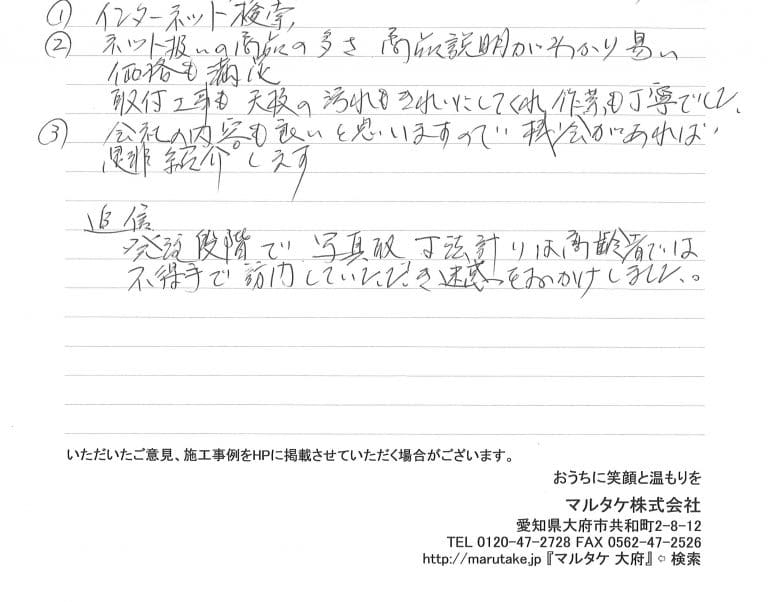 ① インターネット検索
② ネット扱いの商品の多さ 商品説明がわかり易い
価格も満足
取付工事も天板の汚れもきれいにしてくれ 作業も丁寧でした、
③ 会社の内容も良いと思いますので 機会があれば
是非紹介します
追信
発注段階で 写真取 寸法計りは高齢者では
不得手で 訪問していただき迷惑をおかけしました。
いただいたご意見、施工事例をHPに掲載させていただく場合がございます。
おうちに笑顔と温もりを
マルタケ株式会社
愛知県大府市共和町2-8-12
TEL 0120-47-2728 FAX 0562-47-2526
http://marutake.jp『マルタケ 大府』⇦ 検索